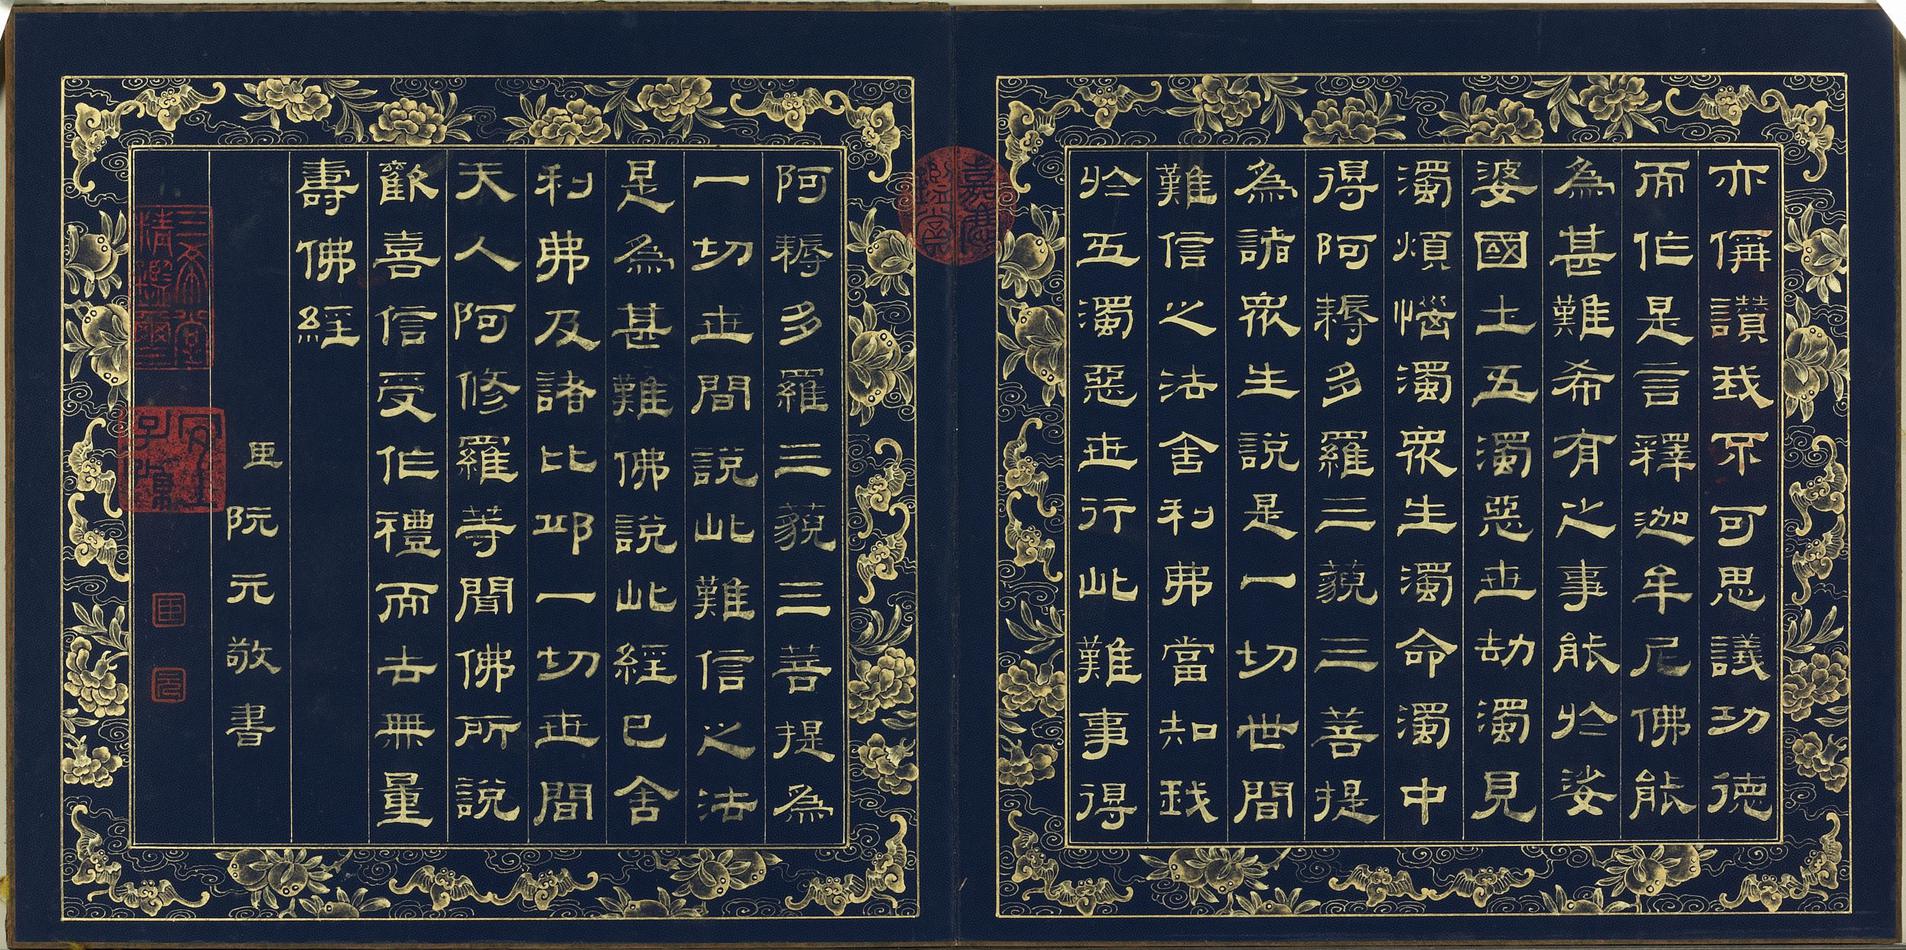 亦稱讚我不可思議功德
而作是言釋迦牟尼佛能
為甚難希有之事能於娑
婆國土五濁惡世劫濁見
濁煩惱濁眾生濁命濁中
得阿耨多羅三藐三菩提
為諸眾生說是一切世間
難信之法舍利弗當知我
於五濁惡世行此難事得
嘉慶鑑賞
阿耨多羅三藐三菩提為
一切世間說此難信之法
是為甚難佛說此經已舍
利弗及諸比邱一切世間
天人阿修羅等聞佛所說
歡喜信受作禮而去無量
壽佛經
臣阮元敬書
三希堂精鑑璽
宜子孫
臣
元